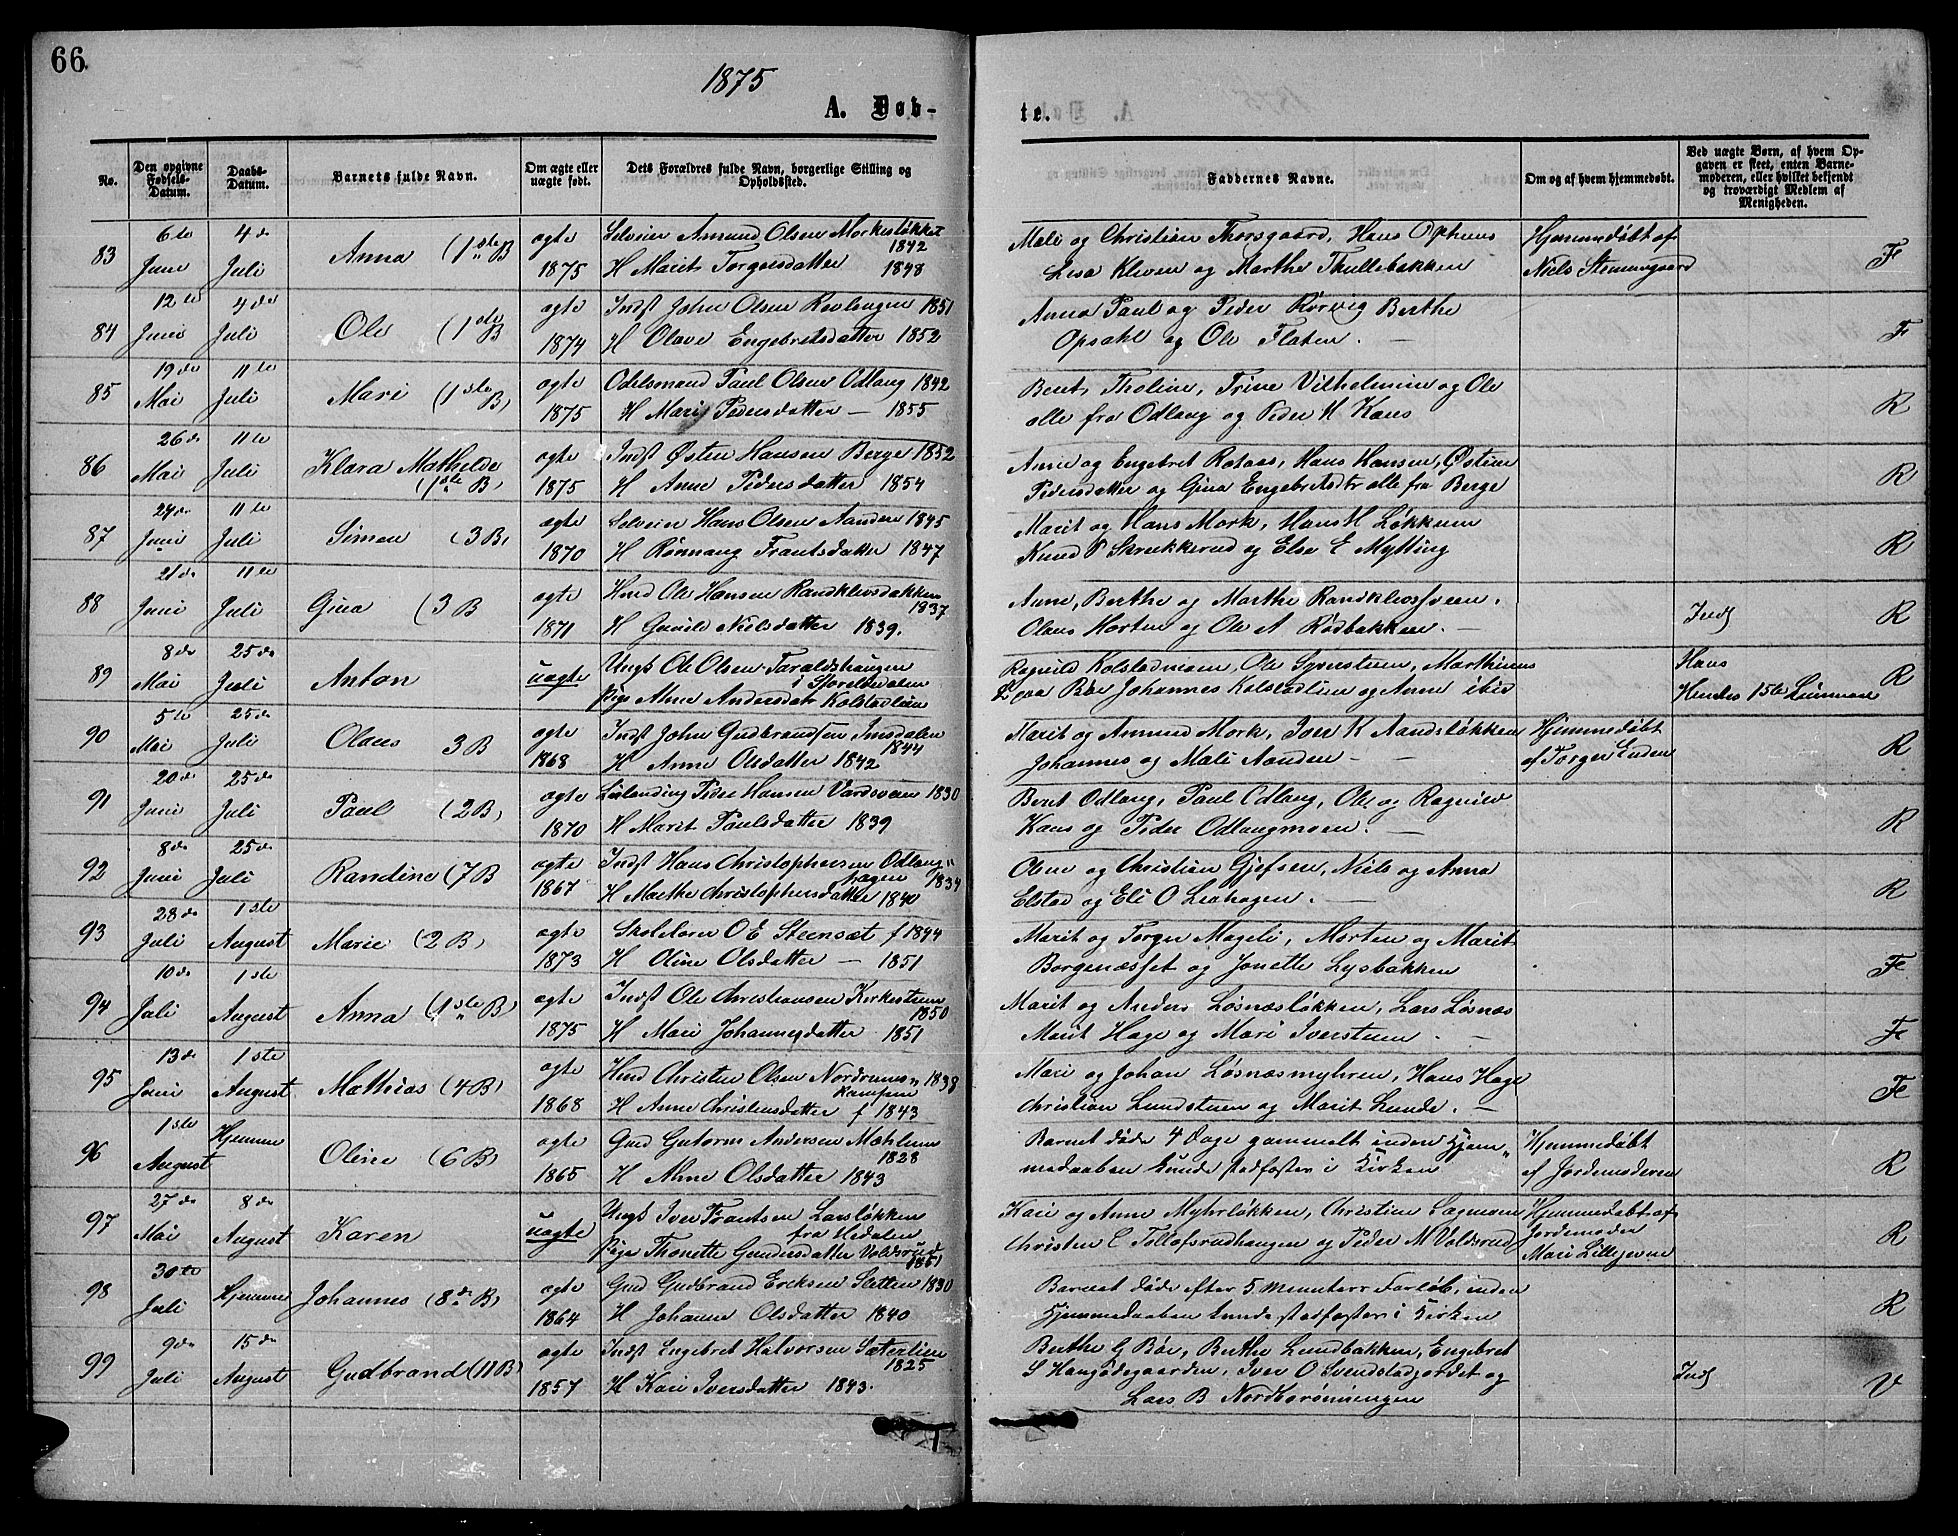 66.
1875
A. Døb-
te.
No.
Den opgivne Fødsels-Datum.
Daabs-Datum.
Barnets fulde Navn.
Om ægte eller uægte født.
Dets Forældres fulde Navn, borgerlige Stilling og Opholdssted.
Faddernes Navne.
Om og af hvem hjemmedøbt.
Ved uægte Børn, af hvem Opgaven er skeet, enten Barnemoderen, eller hvilket bekjendt og troværdigt Medlem af Menigheden.
6te 4de ogte Selveier Amund Olsen Morkesløkken 1842 Mali og Christian Thorsgaard, Hans Hjemmedøbt af
83 Juni Juli Anna (1ste B 1875 H Marit Torgersdatter 1848 Lisa Kleven og Marthe Thullebakken Niels Fe
12te 4de ogte Indst John Olsen 1851 Anna Paul og Peder Rørvig Berthe
84 Juni Juli Ole (1ste B 1874 H Olave Engebretsdatter 1852 Opsahl og Ole Flaten. Fe
19de 11te ogte Odelsmand Paul Olsen Odlaug 1842 Berit, Tholine, Trine Vilhelmine og Ole
85 Mai Juli Mari (1ste B) 1875 H Mari Pedersdatter — 1855 alle fra Odlaug og Peder H Kaus R
26de 11te ogte Indst Østen Hansen Berge 1852 Anne og Engebret Rotaas, Hans Hansen, Østine
86 Mai Juli Klara Mathelde (1ste B) 1875 H Anne Pedersdatter 1854 Pedersdatter og Gina Engebretsdtr alle fra Berge R
24de 11te ogte Selveier Hans Olsen Aanden 1845 Marit og Hans Mork, Hans H Løkkum
87 Juni Juli Simen (3 B) 1870 H Rønnaug Frantsdatter 1847 Knud P Skrukkerud og Else E Mytting R
21de 11te ogte Husd Ole Hansen Randklevsbakken 1837 Anne, Berthe og Marthe Randklevsveen.
88 Juni Juli Gina (3 B 1871 H Gunild Nielsdatter 1839. Olaus Morten og Ole A Rødbakken. — Inds R
8de 25de uægte Ungk Ole Olsen Taraldshaugen i Storelvedalen Ragnild Kolstadmoen, Ole Syversteen, Marthinus Hans
89 Mai Juli Anton Pige Anne Andersdatr Kolstadlien paa Bøe Johannes Kolstadlien og Anne ibid Hendes 1ste Leiermaal R
5te 25de ogte Indst John Gudbrandsen Imsdalen 1844 Marit og Amund Mork, Iver K Aandsløkken Hjemmedøbt
90 Mai Juli Olaus 3 B 1868 H Anne Olsdatter 1842 Johannes og Mali Aanden — af Torger Enden R
20de 25de ogte Peder Hansen 1830 Berit Odlaug, Paul Odlaug, Ole og Ragnild
91 Juni Juli Paul (2 B) 1870 H Marit Paulsdatter 1839 Kaus og Peder Odlaugmoen. — R
8de 25de ogte Indst Hans Christophersen Odlaug-hagen 1834 Olme og Christian Gjefsen, Niels og Anna
92 Juni Juli Randine (7 B 1867 H Marthe Christophersdatter 1840 Elstad og Eli O Liahagen. — R
28de 1ste ogte Skolelærer O E Steensæt f 1844 Marit og Torger Mageli, Morten og Marit
93 Juli August Marie (2 B) 1873 H Oline Olsdatter — 1851 Borgenæsset og Jonette Lysbakken Fe
10de 1ste ogte Indst Ole Christiansen Kirkestuen 1850 Marit og Anders Løsnæsløkken, Lars Løsnæs
94 Juli August Anna (1ste B) 1875 H Mari Johannesdatter 1851 Marit Hage og Mari Iverstuen. — Fe
13de 1ste ogte Husd Christen Olsen Nordrums- 1838 Mari og Johan Løsnæsmyhren, Hans Hage
95 Juni August Mathias (4 B) 1868 H Anne Christensdatter f 1843 Christian Lundstuen og Marit Lunde. — Fe
1ste Hjemme ogte Gaard Gutorm Andersen Mæhlum 1828 Barnet døde 4 Dage gammelt inden Hjem- Hjemmedøbt
96 August Oline (6 B) 1865 H Anne Olsdatter 1843 medaaben kunde stadfæstes i Kirken af Jordemoderen R
27de 8de uægte Ungk Iver Frantsen Larsløkken fra Hedalen Kari og Anne Myhrløkken, Christine Hjemmedøbt af
97 Mai August Karen Pige Thonette Gundersdatter Voldsrud 1851 Christen C Tollofsrudhaugen og Peder N Voldsrud Jordemoder Mari R
30te Hjemme ogte Gaard Gudbrand Ericksen Sletten 1830 Barnet døde efter 5 Minutters Forløb, inden
98 Juli Johannes (8de B) 1864 H Johanne Olsdatter 1840 Hjemmedaaben kunde stadfæstes i Kirken R
9de 15de ogte Indst Engebret Halvorsen Sæterlien 1825 Berthe G Bøe, Berthe Lundbakken, Engebret
99 Juli August Gudbrand (11 B) 1857 H Kari Iversdatter 1843. S Haugsødegaarden, Iver O Svendstadjordet og Lars B Nordbrønningen Inds V